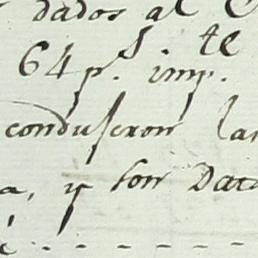 dados al
64 p.s imp.te
conduseron la
a, y son Data